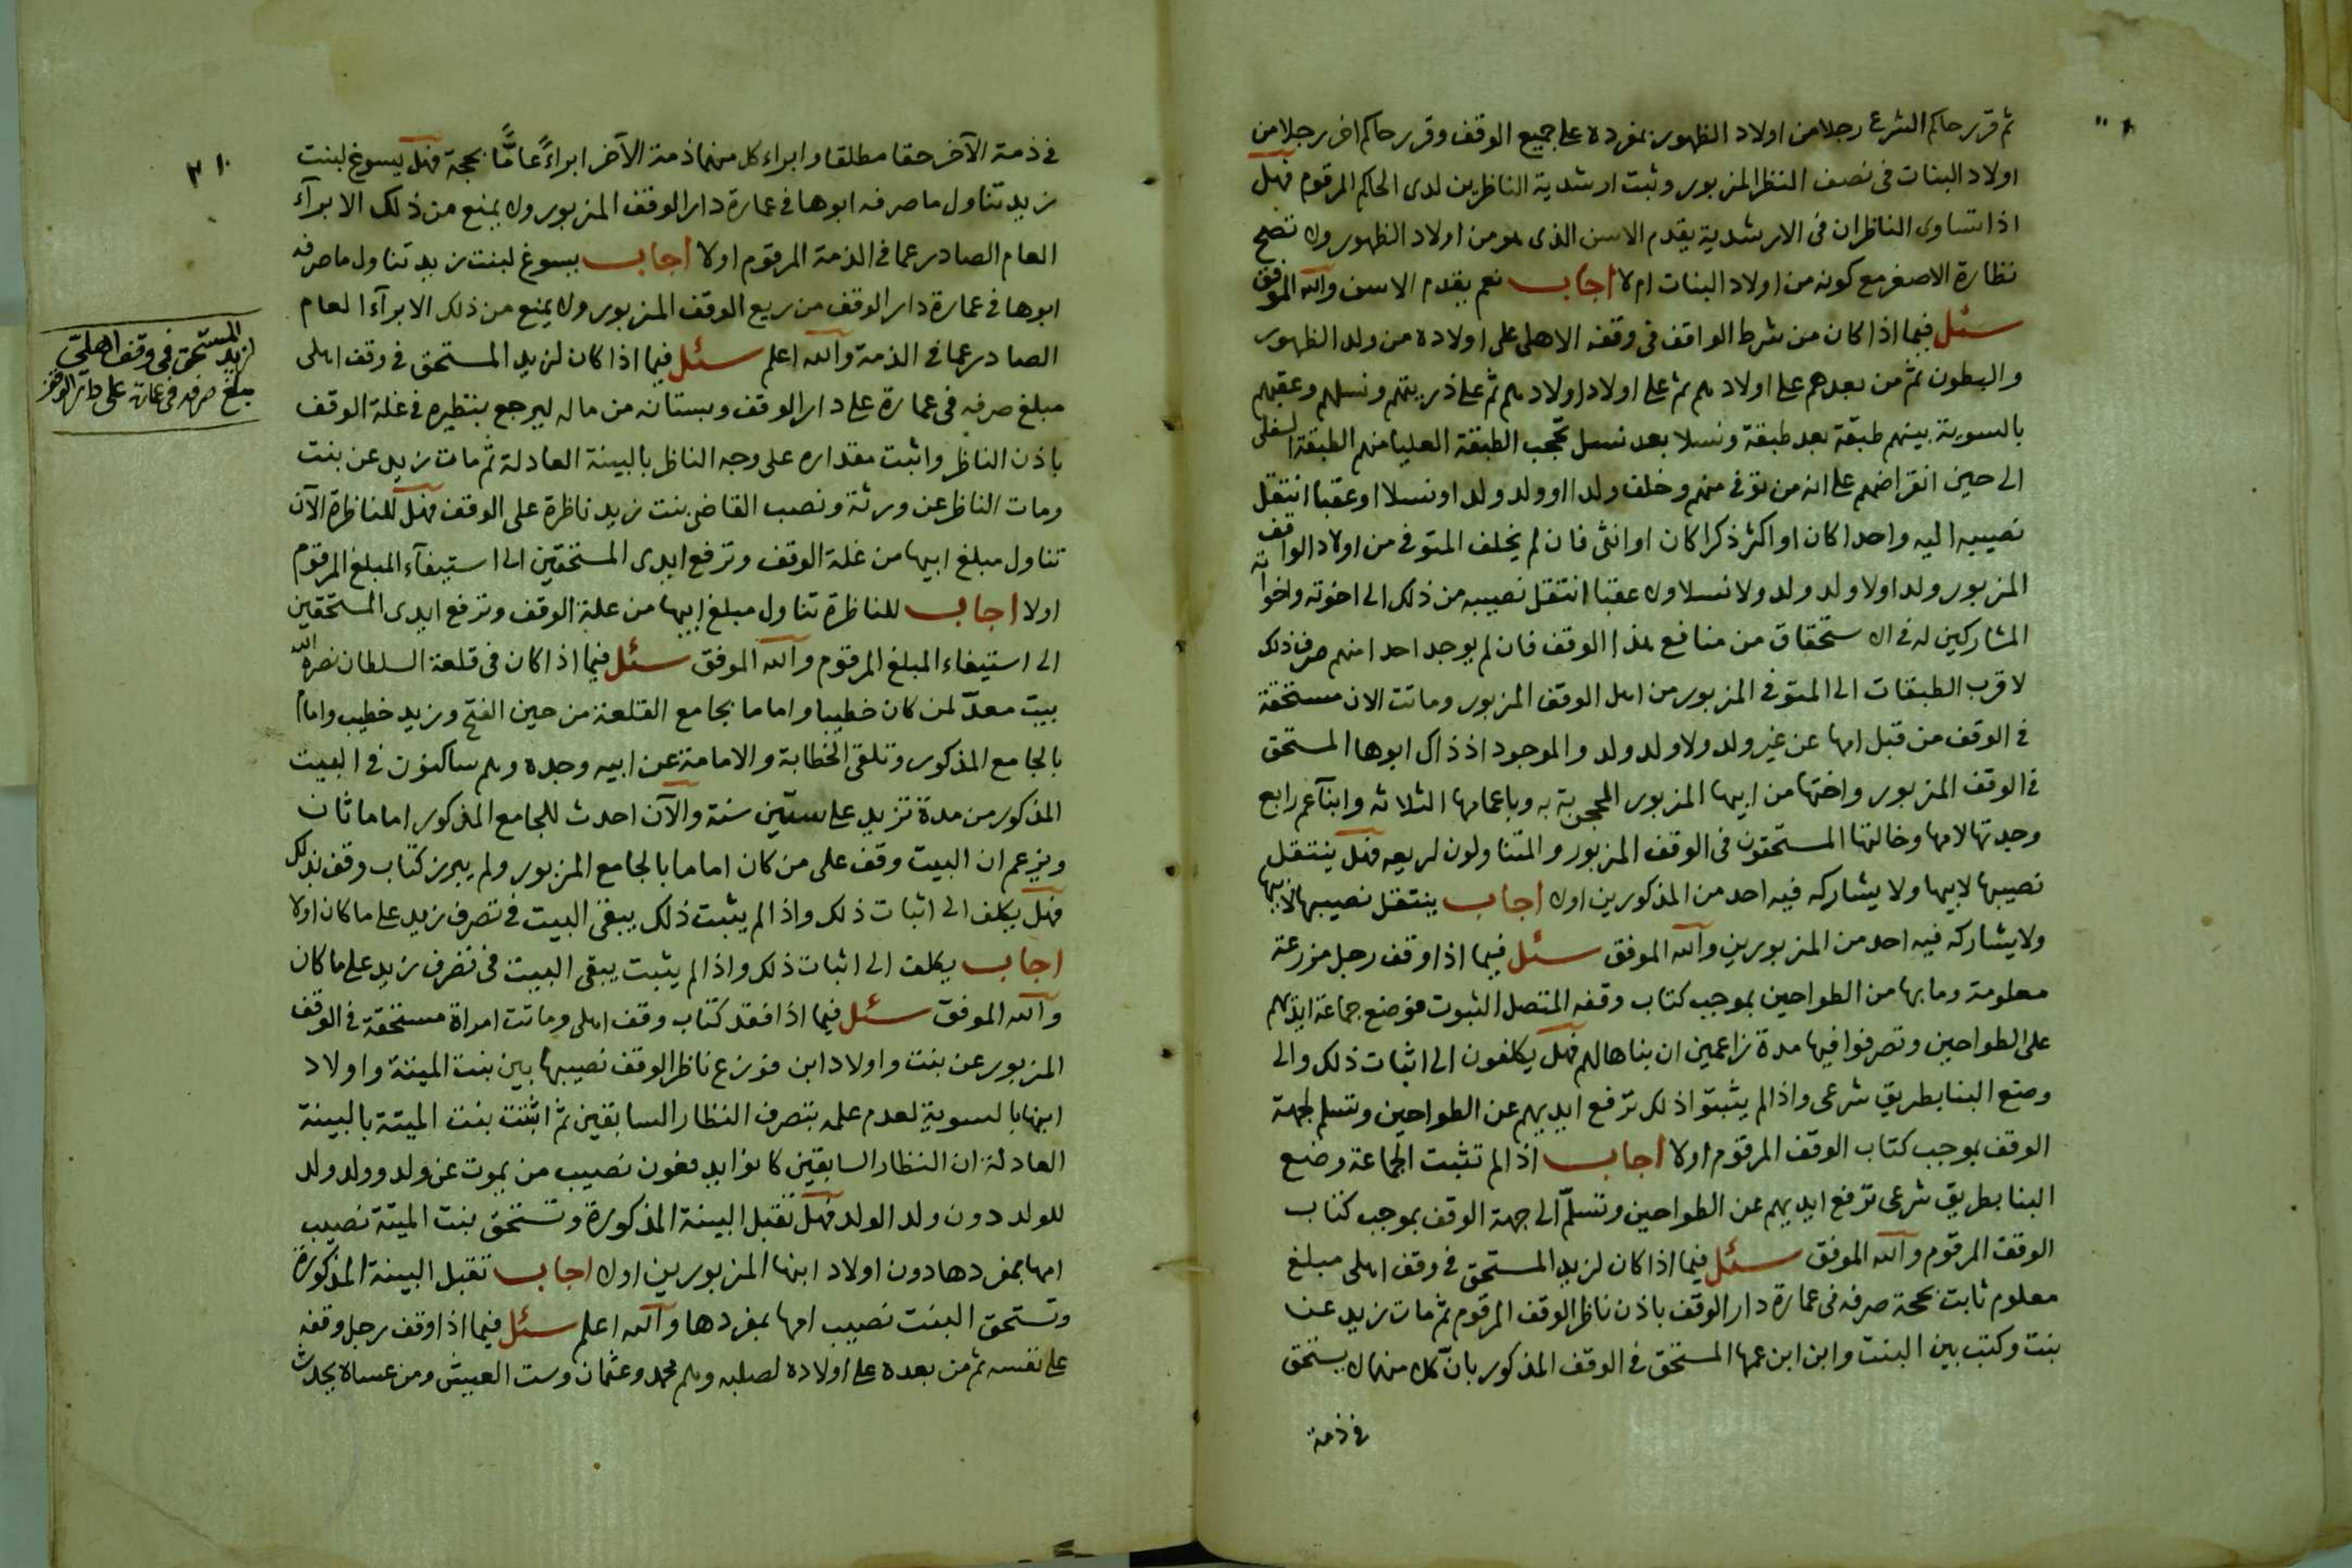 ثم قرر حاكم الشرع رجلا من اولاد الظهور بمفرده على جميع الوقف وقرر حاكم اخر رجلا من
اولاد البنات في نصف النظر المزبور وثبت ارشدية الناظرين لدى الحاكم المرقوم فهل
اذا تساوى الناظران في الارشدية يقدم الاسن الذى هو من اولاد الظهور ولا تصح
نظارة الاصغر مع كونه من اولاد البنات ام لا اجاب نعم يقدم الاسن والله الموفق
سئل فيما اذا كان من شرط الواقف في وقفه الاهلى على اولاده من ولد الظهور
والبطون ثم من بعدهم على اولادهم ثم على اولاد اولادهم ثم على ذريتهم ونسلهم وعقبهم
بالسوية بينهم طبقة بعد طبقة ونسلا بعد نسل تحجب الطبقة العليا منهم الطبقة السفلى
الى حين انقراضهم على انه من توفي منهم وخلف ولدا او ولد ولد او نسلا او عقبا انتقل
نصيبه اليه واحدا كان او اكثر ذكرا كان او انثى فان لم يخلف المتوفي من اولاد الواقف
المزبور ولدا ولا ولد ولد ولا نسلا ولا عقبا انتقل نصيبه من ذلك الى اخوته واخواته
المشاركين له في الاستحقاق من منافع هذا الوقف فان لم يوجد احدا منهم صرف ذلك
لاقرب الطبقات الى المتوفي المزبور من اهل الوقف المزبور وماتت الان مستحقة
في الوقف من قبل امها عن غير ولد ولا ولد ولد والموجود اذ ذاك ابوها المستحق
في الوقف المزبور واختها من ابيها المزبور المحجوبة به وباعمامها الثلاثه وابنا عم رابع
وجدتها لامها وخالتها المستحقون في الوقف المزبور والمتناولون لريعه فهل ينتقل
نصيبها لابيها ولا يشاركه فيه احد من المذكورين اولا اجاب ينتقل نصيبها لابيها
ولا يشاركه فيه احد من المزبورين والله الموفق سئل فيما اذا وقف رجل مزرعة
معلومة وما بها من الطواحين بموجب كتاب وقفه المتصل الثبوت فوضع جماعة ايديهم
على الطواحين وتصرفوا فيها مدة زاعمين ان بناها لهم فهل يكلفون الى اثبات ذلك والى
وضع البنا بطريق شرعى واذا لم يثبتوا ذلك ترفع ايديهم عن الطواحين وتسلم لجهة
الوقف بموجب كتاب الوقف المرقوم اولا اجاب اذا لم تثبت الجماعة وضع
البنا بطريق شرعى ترفع ايديهم عن الطواحين وتسلم الى جهة الوقف بموجب كتاب
الوقف المرقوم والله الموفق سئل فيما اذا كان لزيد المستحق في وقف اهلى مبلغ
معلوم ثابت بحجة صرفه في عمارة دار الوقف باذن ناظر الوقف المرقوم ثم مات زيد عن
بنت وكتب بين البنت وابن ابن عمها المستحق في الوقف المذكور بان كلا منهما لا يستحق
في ذمة
في ذمة الآخر حقا مطلقا وابراء كل منهما ذمة الآخر ابراءً عامًّا بحجة فهل يسوغ لبنت
زيد تناول ما صرفه ابوها في عمارة دار الوقف المزبور ولا يمنع من ذلك الابرآء
العام الصادر عما في الذمة المرقوم اولا اجاب يسوغ لبنت زيد تناول ما صرفه
ابوها في عمارة دار الوقف من ريع الوقف المزبور ولا يمنع من ذلك الابرآء العام
الصادر عما في الذمة والله اعلم سئل فيما اذا كان لزيد المستحق في وقف اهلى
مبلغ صرفه في عمارة على دار الوقف وبستانه من ماله ليرجع بنظيره في غلة الوقف
باذن الناظر واثبت مقداره على وجه الناظر بالبينة العادلة ثم مات زيد عن بنت
ومات الناظر عن ورثة ونصب القاضى بنت زيد ناظرة على الوقف فهل للناظرة الآن
تناول مبلغ ابيها من غلة الوقف وترفع ايدى المستحقين الى استيفآء المبلغ المرقوم
اولا اجاب للناظرة تناول مبلغ ابيها من غلة الوقف وترفع ايدى المستحقين
الى استيفاء المبلغ المرقوم والله الموفق سئل فيما اذا كان في قلعة السلطان نصره الله
بيت معدّ لمن كان خطيبا واماما بجامع القلعة من حين الفتح وزيد خطيب واماما
بالجامع المذكور وتلقى الخطابة والامامة عن ابيه وجده وهم ساكنون في البيت
المذكور من مدة تزيد على ستين سنة والآن احدث للجامع المذكور اماما ثان
ويزعم ان البيت وقف على من كان اماما بالجامع المزبور ولم يبرز كتاب وقف بذلك
فهل يكلف الى اثبات ذلك واذا لم يثبت ذلك يبقى البيت في تصرف زيد على ما كان اولا
اجاب يكلف الى اثبات ذلك واذا لم يثبت يبقى البيت في تصرف زيد على ما كان
والله الموفق سئل فيما اذا فقد كتاب وقف اهلى وماتت امراة مستحقة في الوقف
المزبور عن بنت واولاد ابن فوزع ناظر الوقف نصيبها بين بنت الميتة واولاد
ابنها بالسوية لعدم علمه بتصرف النظار السابقين ثم اثبتت بنت الميتة بالبينة
العادلة ان النظار السابقين كانوا يدفعون نصيب من يموت عن ولد وولد ولد
للولد دون ولد الولد فهل تقبل البينة المذكورة وتستحق بنت الميتة نصيب
امها بمفردها دون اولاد ابنها المزبورين اولا اجاب تقبل البينة المذكورة
وتستحق البنت نصيب امها بمفردها والله اعلم سئل فيما اذا وقف رجل وقفه
على نفسه ثم من بعده على اولاده لصلبه وهم محمد وعثمان وست العيش ومن عساه يحدث
لزيد المستحق في وقف اهلىّ
مبلغ صرفه في عمارة على دار الوقف